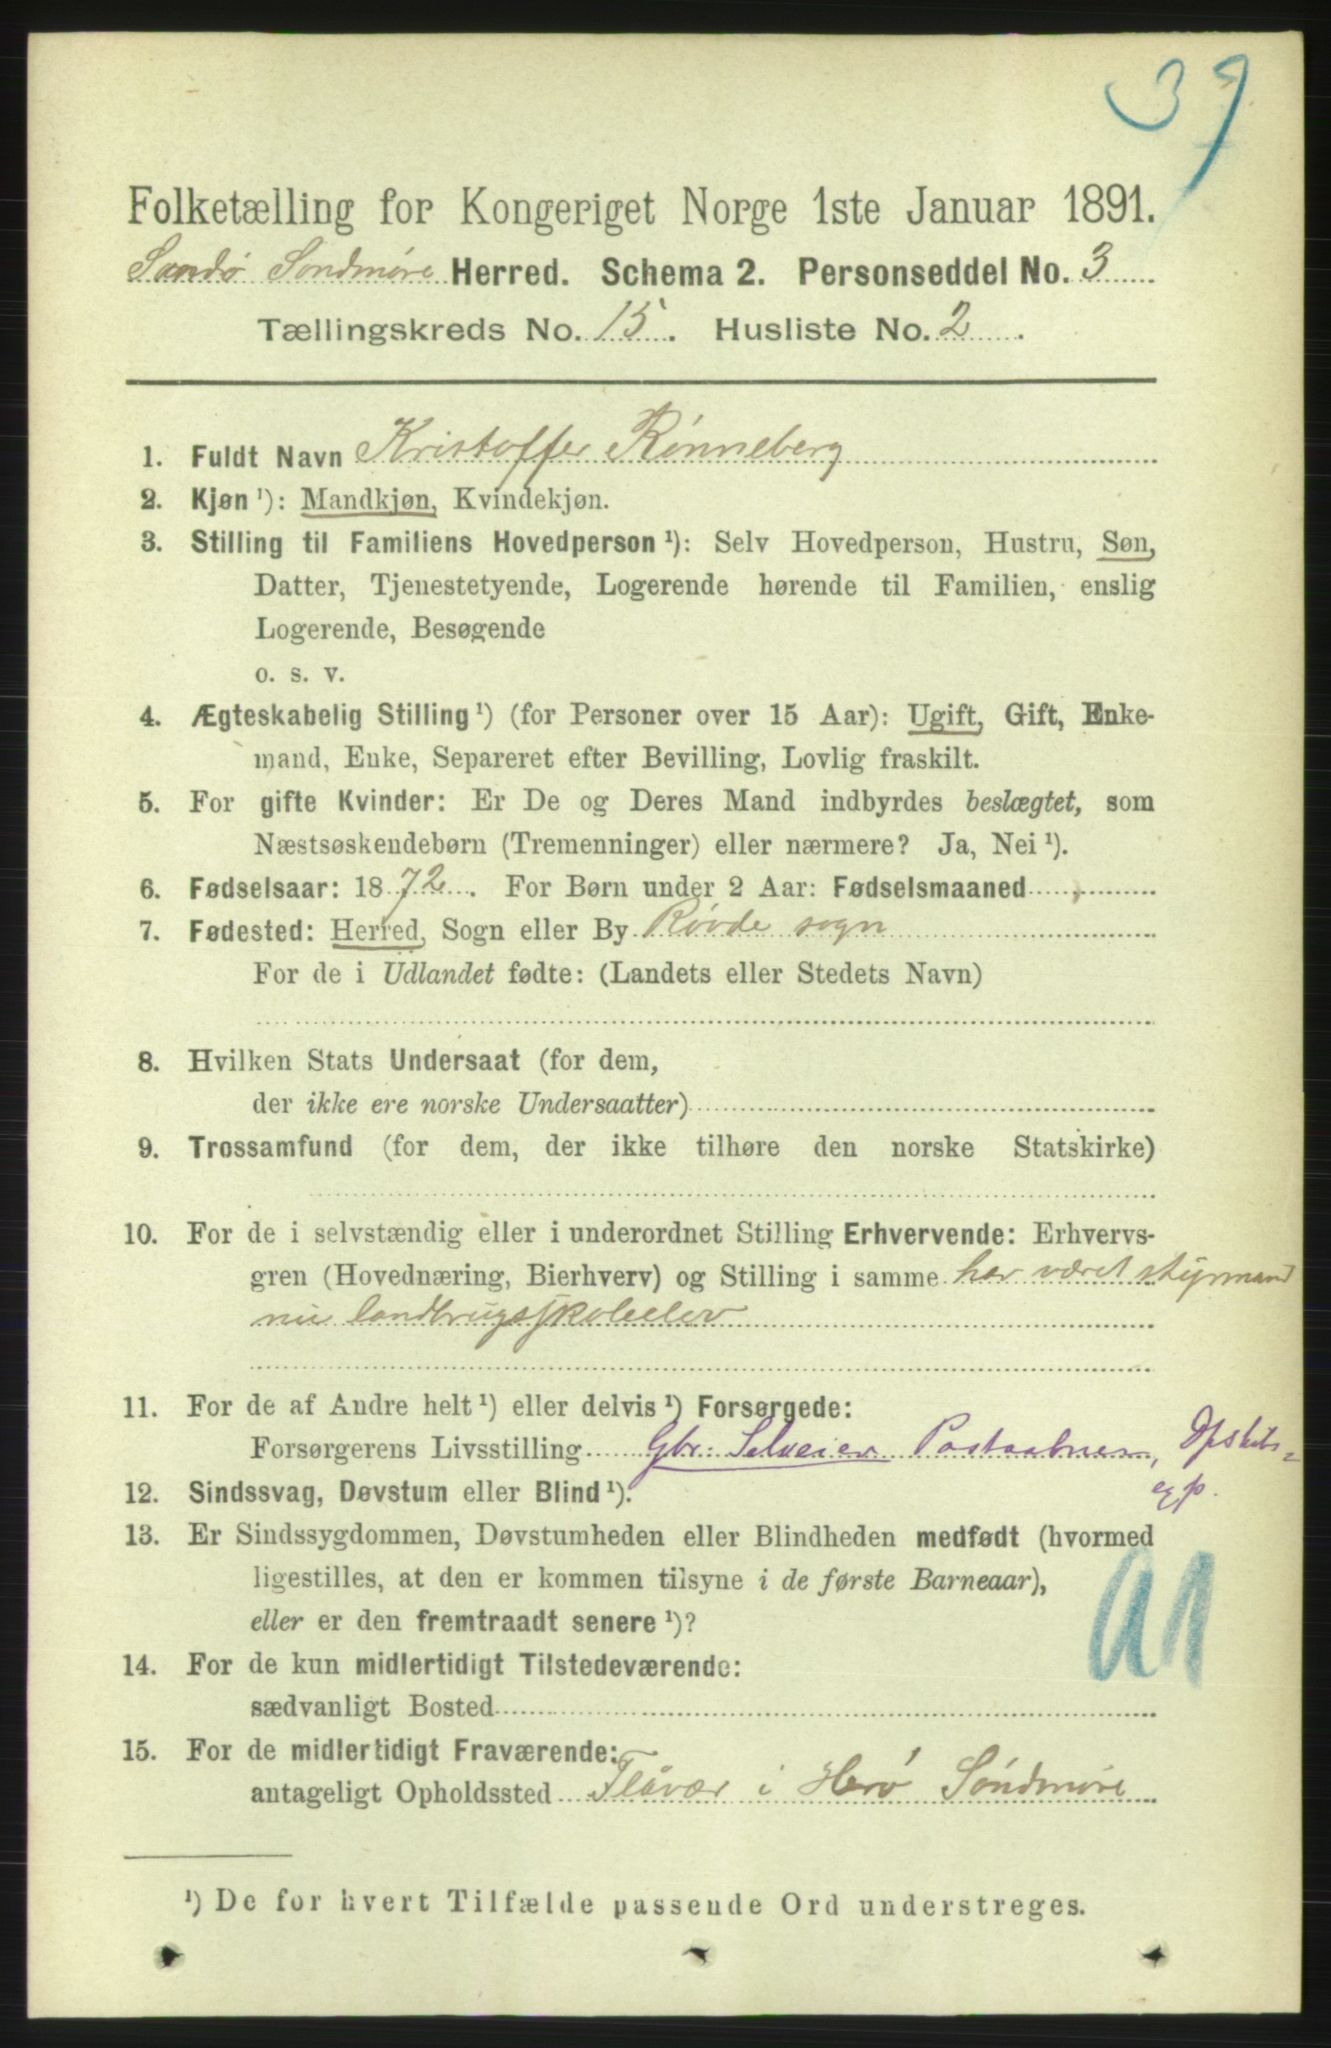 39
Folketælling for Kongeriget Norge 1ste Januar 1891.
Sandø Søndmøre Herred. Schema 2. Personseddel No. 3
Tællingskreds No. 15. Husliste No. 2.
1. Fuldt Navn Kristoffer Rønneberg
2. Kjøn ¹): Mandkjøn, Kvindekjøn.
3. Stilling til Familiens Hovedperson ¹): Selv Hovedperson, Hustru, Søn,
Datter, Tjenestetyende, Logerende hørende til Familien, enslig
Logerende, Besøgende
o. s. v.
4. Ægteskabelig Stilling ¹) (for Personer over 15 Aar): Ugift, Gift, Enke-
mand, Enke, Separeret efter Bevilling, Lovlig fraskilt.
5. For gifte Kvinder: Er De og Deres Mand indbyrdes beslægtet, som
Næstsøskendebørn (Tremenninger) eller nærmere? Ja, Nei ¹).
6. Fødselsaar: 1872. For Børn under 2 Aar: Fødselsmaaned
7. Fødested: Herred, Sogn eller By Røvde sogn
For de i Udlandet fødte: (Landets eller Stedets Navn)
8. Hvilken Stats Undersaat (for dem,
der ikke ere norske Undersaatter)
9. Trossamfund (for dem, der ikke tilhøre den norske Statskirke)
10. For de i selvstændig eller i underordnet Stilling Erhvervende: Erhvervs-
gren (Hovednæring, Bierhverv) og Stilling i samme har været styrmand
nu landbrugsskoleelev
11. For de af Andre helt ¹) eller delvis ¹) Forsørgede:
Forsørgerens Livsstilling Gbr: Selveier Postaabner,
12. Sindssvag, Døvstum eller Blind ¹).
13. Er Sindssygdommen, Døvstumheden eller Blindheden medfødt (hvormed
ligestilles, at den er kommen tilsyne i de første Barneaar),
eller er den fremtraadt senere ¹)?
14. For de kun midlertidigt Tilstedeværende:
sædvanligt Bosted
15. For de midlertidigt Fraværende:
antageligt Opholdssted Flåvær i Herø Søndmøre
¹) De for hvert Tilfælde passende Ord understreges.